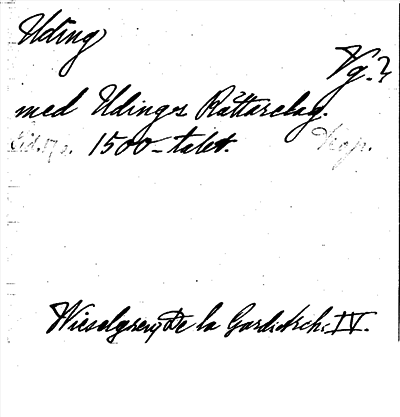 Uding
Vg.?
med Udings Rättarelag.
1500-talet.
Wieselgren, De la Gardi. Arch. IV.